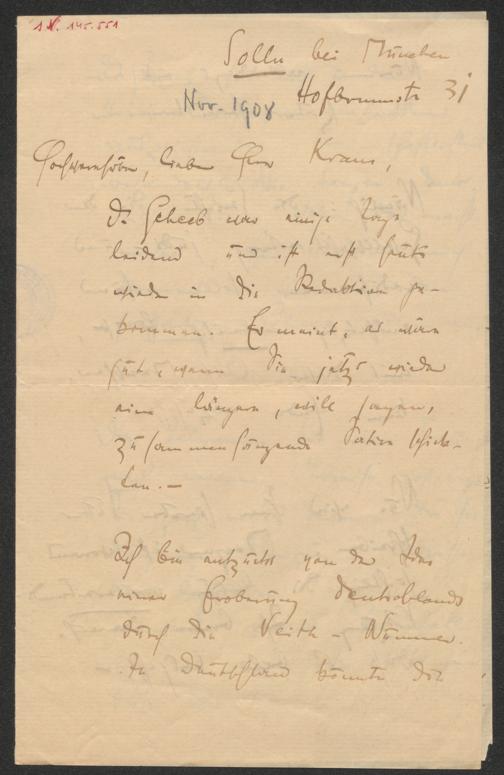 I.N. 145.551
Solln bei München
Nov. 1908 Hofbrunnstr 31
Hochverehrter, lieber Herr Kraus,
Dr. Geheeb war einige Tage
leidend und ist erst heute
wieder in die Redaktion ge-
kommen. Er meint, es wäre
gut, wenn Sie jetzt wieder
eine längere, will sagen,
zusammenhängende Satire schick-
ten. —
Ich bin entzückt von der Idee
einer Eroberung Deutschlands
durch die Veith-Nummer.
In Deutschland könnte die